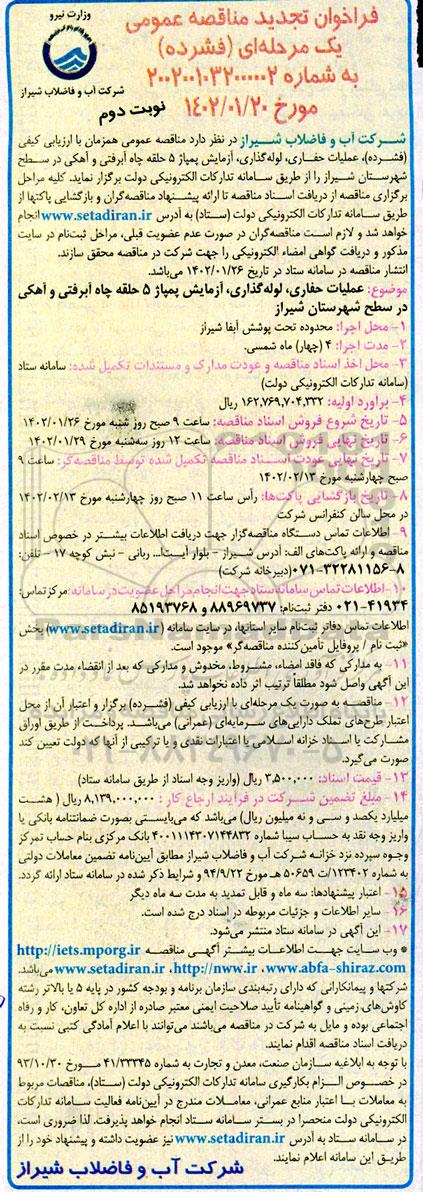 فراخوان تجدید مناقصه عمومی
یک مرحله‌ای (فشرده)
به شماره ۲۰۰۲۰۰۱۰۳۲۰۰۰۰۰۲
مورخ ۱۴۰۲/۰۱/۲۰
نوبت دوم
وزارت نیرو
شرکت آب و فاضلاب شیراز
شرکت آب و فاضلاب شیراز در نظر دارد مناقصه عمومی همزمان با ارزیابی کیفی
(فشرده)، عملیات حفاری، لوله‌گذاری، آزمایش پمپاژ ۵ حلقه چاه آبرفتی و آهکی در سطح
شهرستان شیراز را از طریق سامانه تدارکات الکترونیکی دولت برگزار نماید. کلیه مراحل
برگزاری مناقصه از دریافت اسناد مناقصه تا ارائه پیشنهاد مناقصه‌گران و بازگشایی پاکتها از
طریق سامانه تدارکات الکترونیکی دولت (ستاد) به آدرس www.setadiran.ir انجام
خواهد شد و لازم است مناقصه‌گران در صورت عدم عضویت قبلی، مراحل ثبت‌نام در سایت
مذکور و دریافت گواهی امضاء الکترونیکی را جهت شرکت در مناقصه محقق سازند.
انتشار مناقصه در سامانه ستاد در تاریخ ۱۴۰۲/۰۱/۲۶ می‌باشد.
موضوع: عملیات حفاری، لوله‌گذاری، آزمایش پمپاژ ۵ حلقه چاه آبرفتی و آهکی
در سطح شهرستان شیراز
۱- محل اجرا: محدوده تحت پوشش آبفا شیراز
۲- مدت اجرا: ۴ (چهار) ماه شمسی.
۳- محل اخذ اسناد مناقصه و عودت مدارک و مستندات تکمیل شده: سامانه ستاد
(سامانه تدارکات الکترونیکی دولت)
۴- برآورد اولیه: ۱۶۲,۷۶۹,۷۰۴,۳۳۲ ریال
۵- تاریخ شروع فروش اسناد مناقصه: ساعت ۹ صبح روز شنبه مورخ ۱۴۰۲/۰۱/۲۶
۶- تاریخ نهایی فروش اسناد مناقصه: ساعت ۱۲ روز سه‌شنبه مورخ ۱۴۰۲/۰۱/۲۹
۷- تاریخ نهایی عودت اسناد مناقصه تکمیل شده توسط مناقصه‌گر: ساعت ۹
صبح چهارشنبه مورخ ۱۴۰۲/۰۲/۱۳
۸- تاریخ بازگشایی پاکت‌ها: رأس ساعت ۱۱ صبح روز چهارشنبه مورخ ۱۴۰۲/۰۲/۱۳
در محل سالن کنفرانس شرکت
۹- اطلاعات تماس دستگاه مناقصه‌گزار جهت دریافت اطلاعات بیشتر در خصوص اسناد
مناقصه و ارائه پاکت‌های الف: آدرس شیراز - بلوار آیت‌ا... ربانی - نبش کوچه ۱۷ - تلفن:
۸-۳۲۲۸۱۱۵۶-۰۷۱ (دبیرخانه شرکت)
۱۰- اطلاعات تماس سامانه ستاد جهت انجام مراحل عضویت در سامانه: مرکز تماس:
۴۱۹۳۴-۰۲۱ دفتر ثبت‌نام: ۸۸۹۶۹۷۳۷ و ۸۵۱۹۳۷۶۸
اطلاعات تماس دفاتر ثبت‌نام سایر استانها، در سایت سامانه (www.setadiran.ir) بخش
«ثبت نام / پروفایل تأمین‌کننده مناقصه‌گر» موجود است.
۱۱- به مدارکی که فاقد امضاء، مشروط، مخدوش و مدارکی که بعد از انقضاء مدت مقرر در
این آگهی واصل شود مطلقاً ترتیب اثر داده نخواهد شد.
۱۲- مناقصه به صورت یک مرحله‌ای با ارزیابی کیفی (فشرده) برگزار و اعتبار آن از محل
اعتبار طرح‌های تملک دارایی‌های سرمایه‌ای (عمرانی) می‌باشد. پرداخت از طریق اوراق
مشارکت یا اسناد خزانه اسلامی یا اعتبارات نقدی و یا ترکیبی از آنها که دولت تعیین کند
صورت می‌گیرد.
۱۳- قیمت اسناد: ۳,۵۰۰,۰۰۰ ریال (واریز وجه اسناد از طریق سامانه ستاد)
۱۴- مبلغ تضمین شرکت در فرآیند ارجاع کار: ۸,۱۳۹,۰۰۰,۰۰۰ ریال ( هشت
میلیارد یکصد و سی و نه میلیون ریال) می‌باشد که می‌بایستی بصورت ضمانتنامه بانکی یا
واریز وجه نقد به حساب سیبا شماره ۴۰۰۱۱۱۴۳۰۷۱۴۴۸۳۲ بانک مرکزی بنام حساب تمرکز
وجوه سپرده نزد خزانه شرکت آب و فاضلاب شیراز مطابق آیین‌نامه تضمین معاملات دولتی
به شماره ۱۲۳۴۰۲/ت ۵۰۶۵۹ هـ مورخ ۹۴/۹/۲۲ و شرایط ذکر شده در سامانه ستاد ارائه گردد.
۱۵- اعتبار پیشنهادها: سه ماه و قابل تمدید به مدت سه ماه دیگر
۱۶- سایر اطلاعات و جزئیات مربوطه در اسناد درج شده است.
۱۷- این آگهی در سامانه ستاد منتشر می‌شود.
* وب سایت جهت اطلاعات بیشتر آگهی مناقصه http://iets.mporg.ir
www.abfa-shiraz.com، http://nww.ir، www.setadiran.ir می‌باشد.
شرکتها و پیمانکارانی که دارای رتبه‌بندی سازمان برنامه و بودجه کشور در پایه ۵ یا بالاتر رشته
کاوش‌های زمینی و گواهینامه تأیید صلاحیت ایمنی معتبر صادره از اداره کل تعاون، کار و رفاه
اجتماعی بوده و مایل به شرکت در مناقصه می‌باشند می‌توانند با اعلام آمادگی کتبی نسبت به
دریافت اسناد مناقصه اقدام نمایند.
با توجه به ابلاغیه سازمان صنعت، معدن و تجارت به شماره ۴۱/۳۳۳۴۵ مورخ ۹۳/۱۰/۳۰
در خصوص الزام بکارگیری سامانه تدارکات الکترونیکی دولت (ستاد)، مناقصات مربوط
به معاملات با اعتبار منابع عمرانی، معاملات مندرج در آیین‌نامه فعالیت سامانه تدارکات
الکترونیکی دولت منحصرا در بستر سامانه ستاد انجام خواهد پذیرفت. لذا ضروری است،
در سامانه ستاد به آدرس www.setadiran.ir نیز عضویت داشته و پیشنهاد خود را از
طریق این سامانه اعلام نمایند.
شرکت آب و فاضلاب شیراز